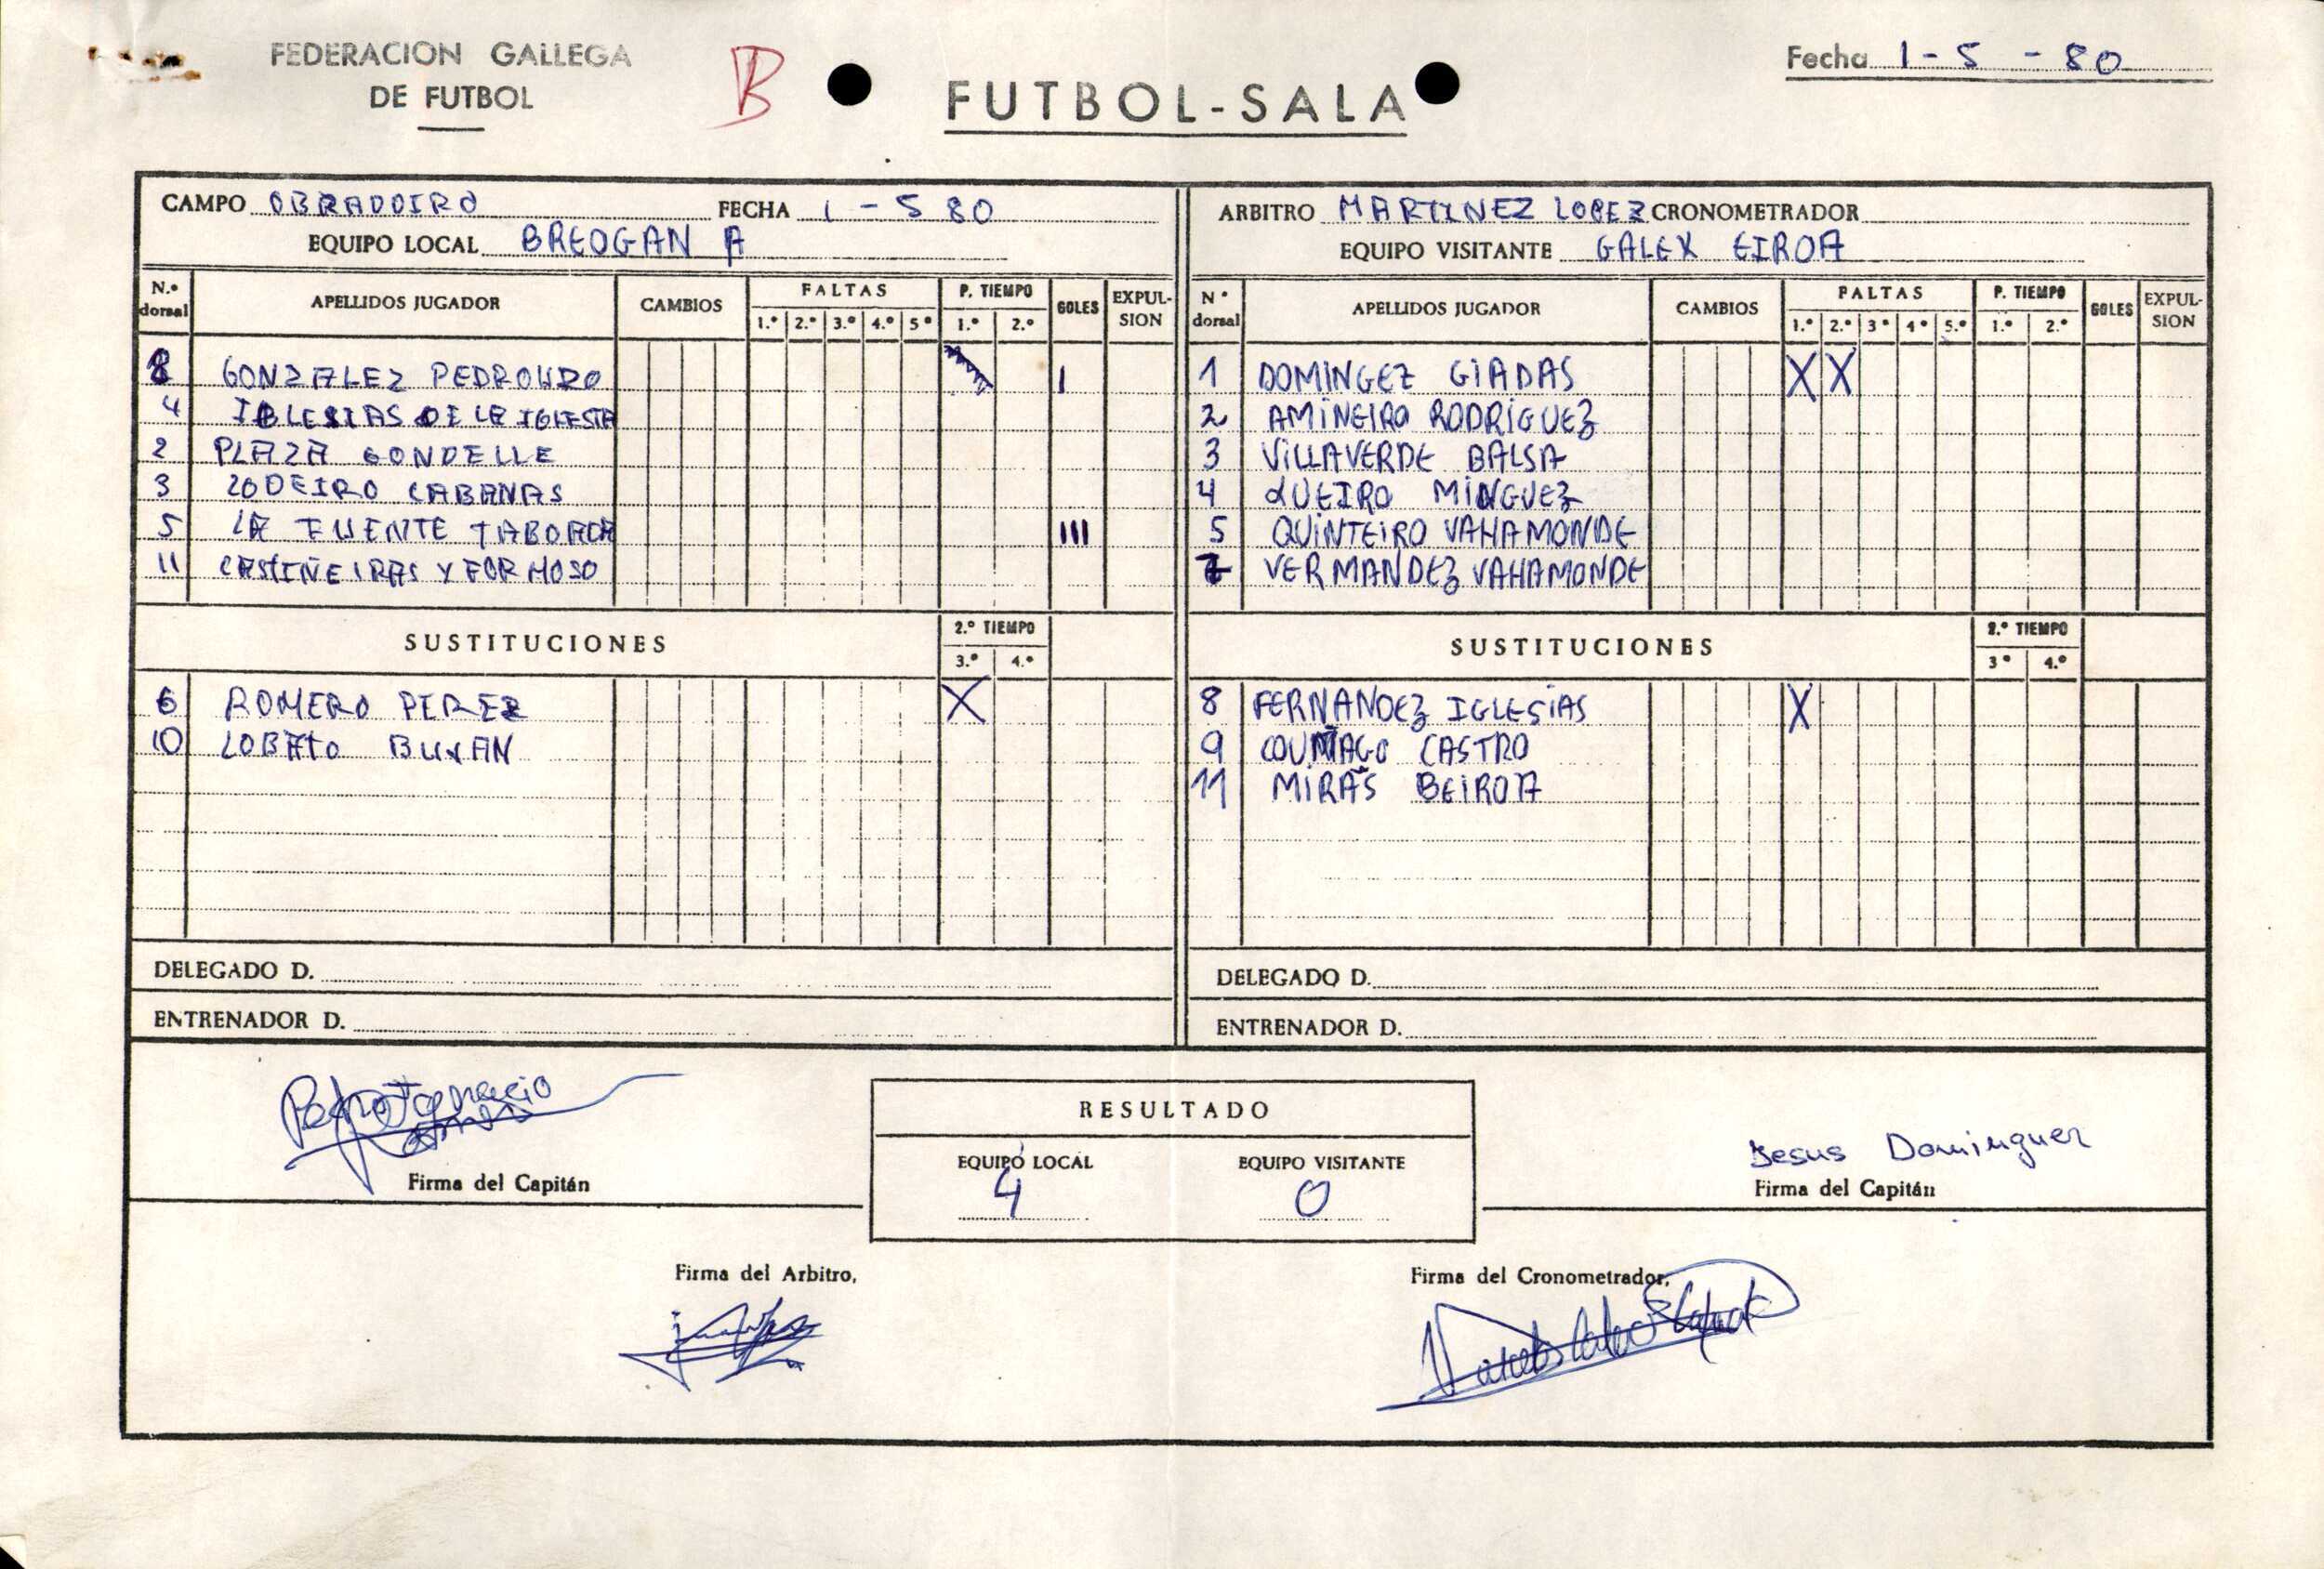 FEDERACION GALLEGA
DE FUTBOL
B
FUTBOL-SALA
Fecha 1-5-80
CAMPO OBRADOIRO FECHA 1-5 80
EQUIPO LOCAL BREOGAN A
N.º dorsal APELLIDOS JUGADOR CAMBIOS FALTAS 1.º 2.º 3.º 4.º 5º P. TIEMPO 1.º 2.º GOLES EXPULSION
8 GONZALEZ I
4 IGLESIAS DE LA IGLESIA
2 PLAZA GONDELLE
3 ZODEIRO CABANAS
5 LA FUENTE TABOADA III
11 CASTIÑEIRAS Y FORMOSO
SUSTITUCIONES 2.º TIEMPO 3.º 4.º
6 ROMERO PEREZ X
10 LOBATO BUXAN
DELEGADO D.
ENTRENADOR D.
ARBITRO MARTINEZ LOPEZ CRONOMETRADOR
EQUIPO VISITANTE GALEX EIROA
Nº dorsal APELLIDOS JUGADOR CAMBIOS FALTAS 1.º 2.º 3º 4º 5.º P. TIEMPO 1.º 2.º GOLES EXPULSION
1 DOMINGEZ GIADAS X X
2 AMINEIRO RODRIGUEZ
3 VILLAVERDE BALSA
4 QUEIRO MINGUEZ
5 QUINTEIRO VAHAMONDE
7 VERMANDEZ VAHAMONDE
SUSTITUCIONES 2.º TIEMPO 3º 4.º
8 FERNANDEZ IGLESIAS X
9 CASTRO
11 MIRAS BEIROA
DELEGADO D.
ENTRENADOR D.
Pedro Ignacio
Firma del Capitán
RESULTADO
EQUIPO LOCAL EQUIPO VISITANTE
4 0
Jesus Dominguez
Firma del Capitán
Firma del Arbitro,
Firma del Cronometrador,